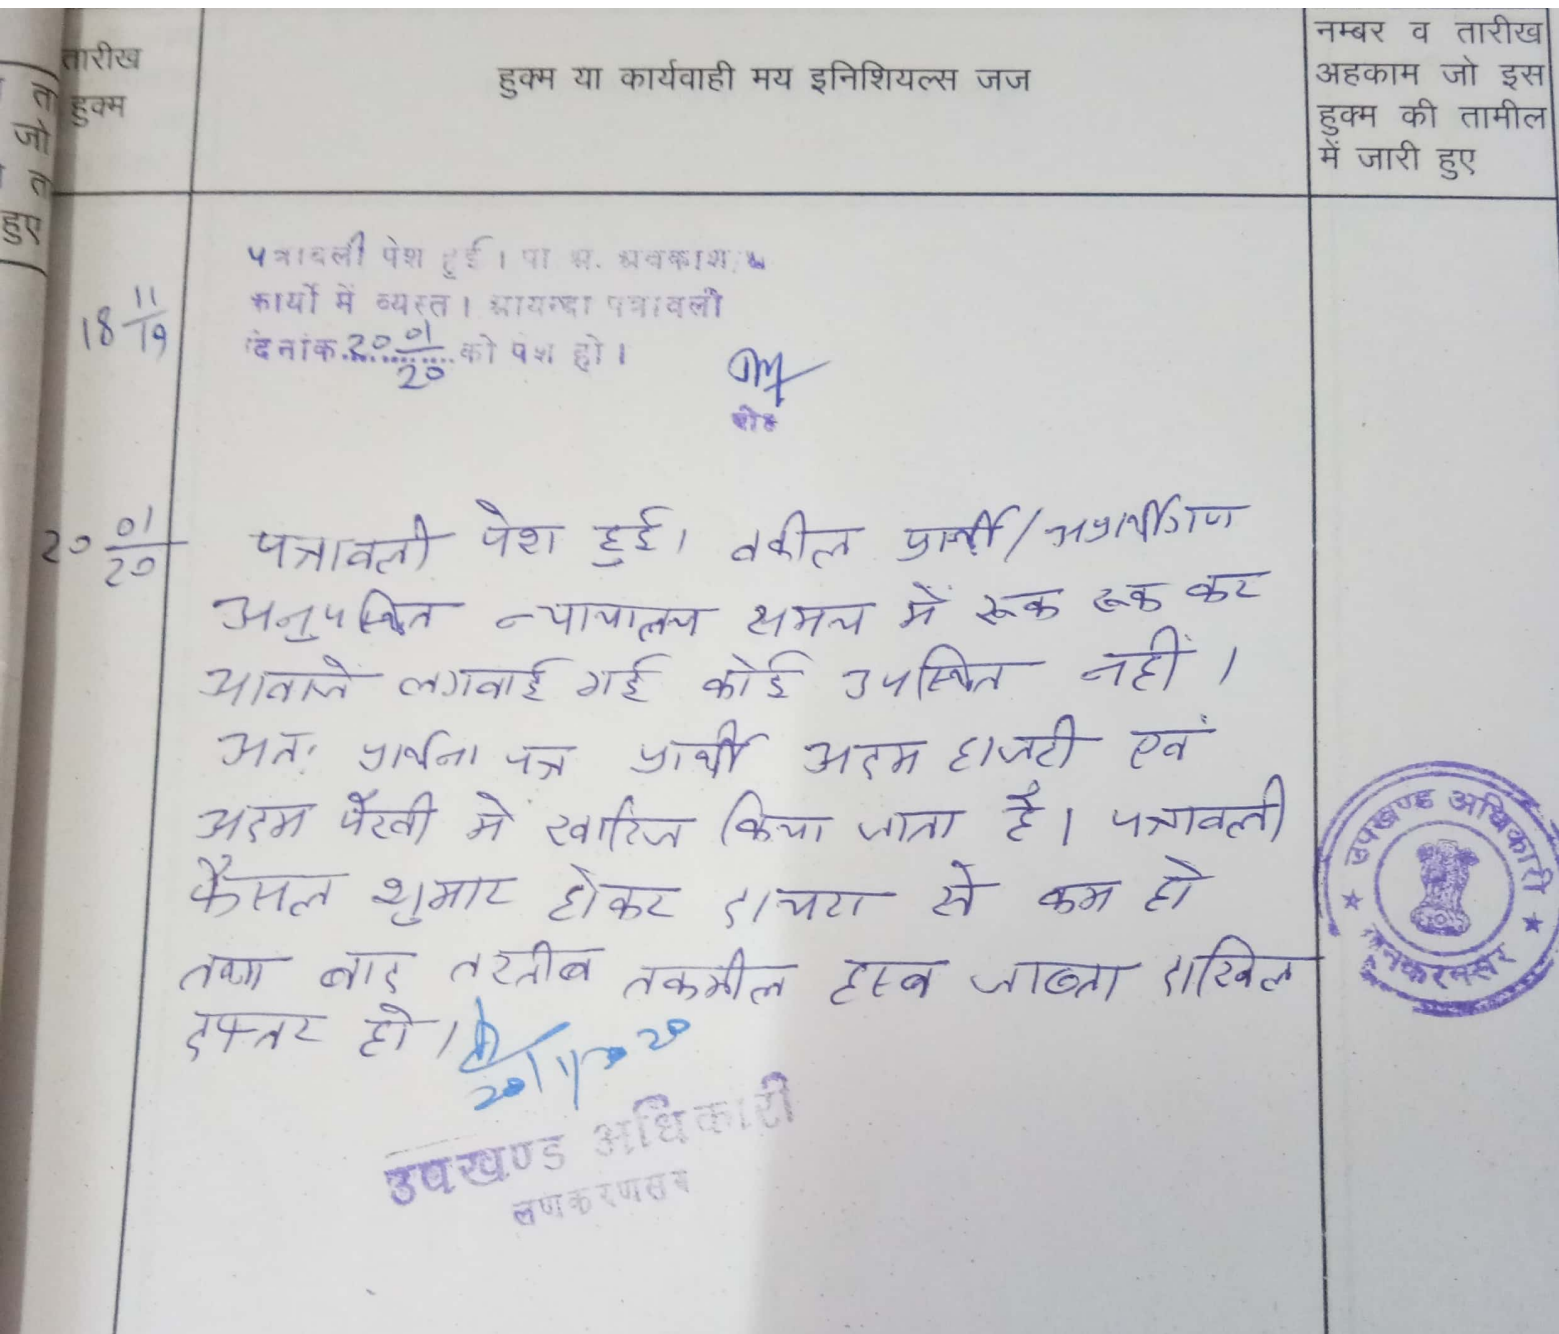 तारीख
हुक्म
हुक्म या कार्यवाही मय इनिशियल्स जज
नम्बर व तारीख
अहकाम जो इस
हुक्म की तामील
में जारी हुए
ता
जो
ता
हुए
18 11/19
पत्रावली पेश हुई। पी अ. अवकाश,
कार्यो में व्यस्त। आयन्दा पत्रावली
दिनांक 20 01/20 को पेश हो।
20 01/20
पत्रावली पेश हुई। वकील प्रार्थी/अप्रार्थीगण
अनुपस्थित न्यायालय समय में रूक रूक कर
आवाजे लगवाई गई कोई उपस्थित नहीं।
अतः प्रार्थना पत्र प्रार्थी अदम हाजरी एवं
अदम पैरवी मे खारिज किया जाता है। पत्रावली
फैसल शुमार होकर दायरा से कम हो
तथा बाद तरतीब तकमील हस्ब जाब्ता दाखिल
दफ्तर हो।
20/1/2020
उपखण्ड अधिकारी
लूणकरणसर
उपखण्ड अधिकारी
लूनकरणसर